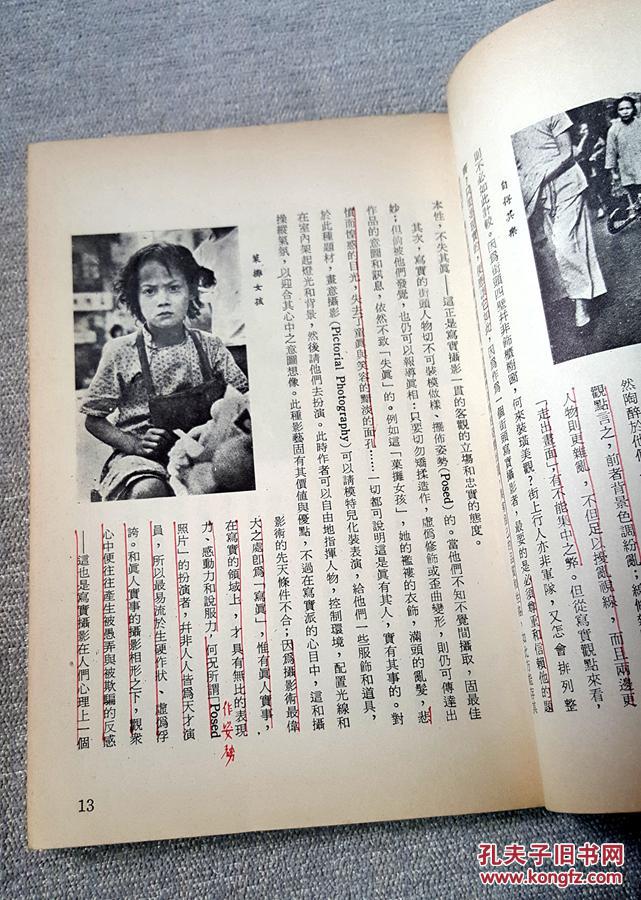 自得其樂
然陶醉於他們
觀點言之，前者背景色調紛亂，線
人物則更雜亂，不但足以擾亂視線，而且兩邊更
「走出畫面」，有不能集中之弊。但從寫實觀點來看，
何來裝璜美觀？街上行人亦非軍隊，又怎會排列整
則不必如此計較。因爲街頭四壁幷非飾櫃櫥窗，
本性，不失其眞——這正是寫實攝影一貫的客觀的立塲和忠實的態度。
其次，寫實的街頭人物切不可裝模做樣、擺佈姿勢(Posed)的。當他們不知不覺間攝取，固最佳
妙；但倘被他們發覺，也仍可以報導眞相；只要切勿矯揉造作，虛僞修飾或歪曲變形，則仍可傳達出
作品的意圖和訊息，依然不致「失眞」的。例如這「菓攤女孩」，她的襤褸的衣飾，滿頭的亂髮，悲
憤而懷惑的目光，失去了童眞與笑容的黯淡的面孔……一切都可說明這是眞有其人，實有其事的。對
於此種題材，畫意攝影(Pictorial Photography)可以請模特兒化裝表演，給他們一些服飾和道具，
在室內架起燈光和背景，然後請他們去扮演。此時作者可以自由地指揮人物，控制環境，配置光線和
操縱氣氛，以迎合其心中之意圖想像。此種影藝固有其價值與優點，不過在寫實派的心目中，這和攝
菓攤女孩
影術的先天條件不合；因爲攝影術最偉
大之處卽爲「寫眞」，惟有眞人實事，
在寫實的領域上，才具有無比的表現
力、感動力和說服力，何況所謂「Posed
作姿勢
照片」的扮演者，幷非人人皆爲天才演
員，所以最易流於生硬作狀、虛僞浮
誇。和眞人實事的攝影相形之下，觀衆
心中便往往產生被愚弄與被欺騙的反感
這也是寫實攝影在人們心理上一個
13
孔夫子旧书网
www.kongfz.com